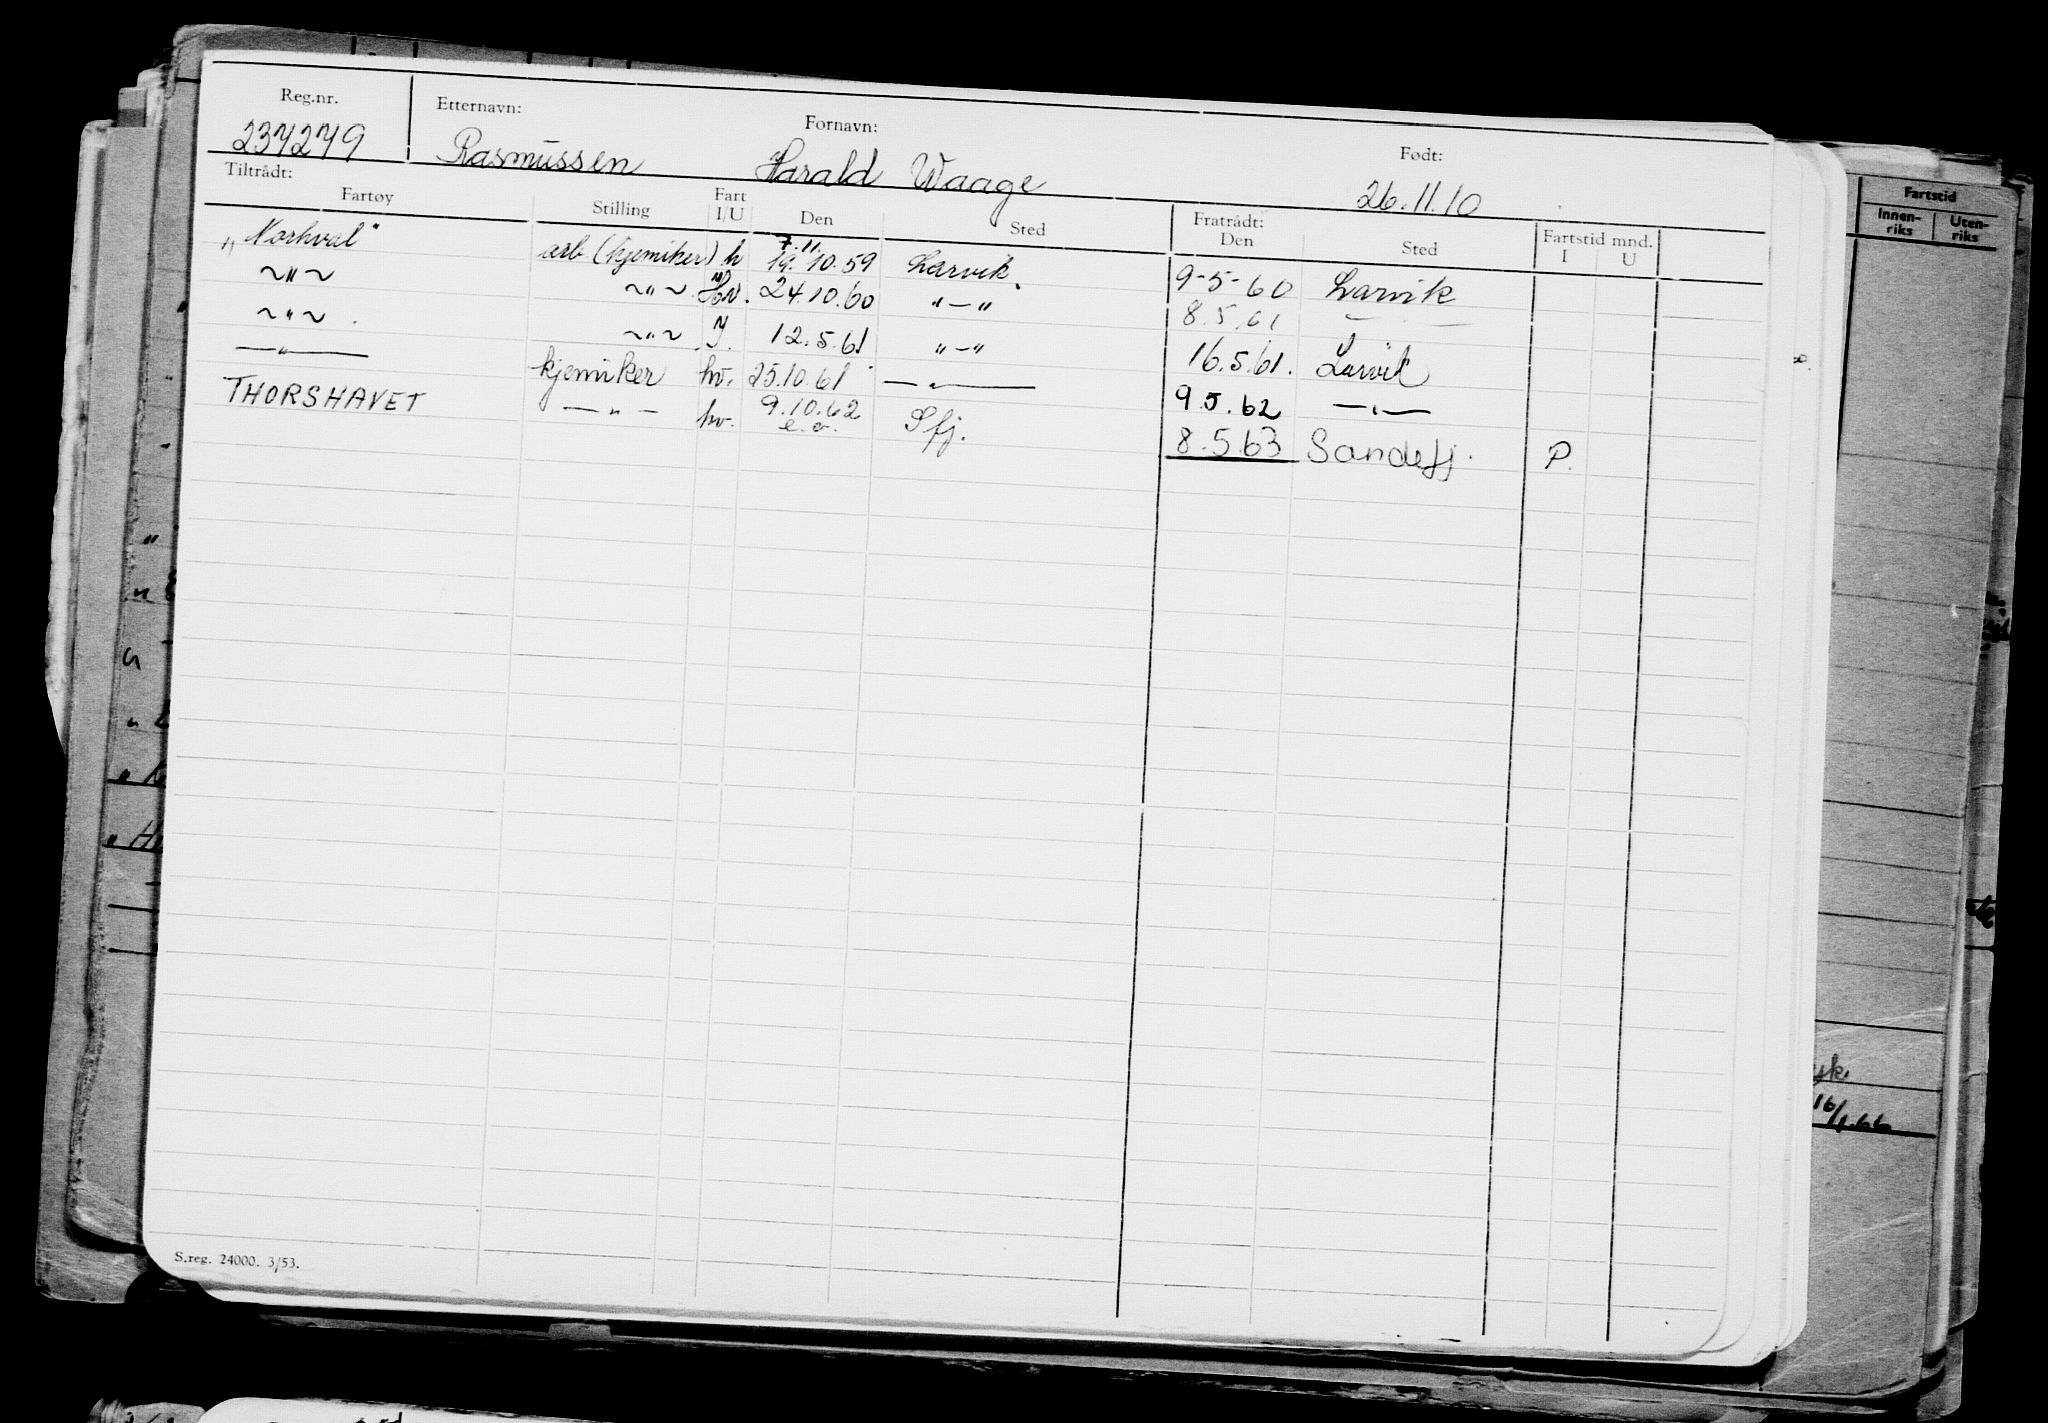 Reg.nr. Etternavn: Fornavn: Født:
237279 Rasmussen Harald Waage 26.11.10
Tiltrådt: Fratrådt:
Fartøy Stilling Fart I/U Den Sted Den Sted Fartstid mnd. I U
7.11.
"Norhval" arb. (kjemiker) h 19.10.59 Larvik. 9-5-60 Larvik
~"~ ~"~ Hv. 24.10.60 "-" 8.5.61
~"~ . ~"~ 12.5.61 "-" 16.5.61. Larvik
—"— kjemiker hv. 25.10.61 —"— 9.5.62 —"—
THORSHAVET —"— hv. 9.10.62 Sfj. 8.5.63 Sandefj. P.
e.o.
S.reg. 24000. 3/53.
Fartstid
Innen-
riks
Uten-
riks
16/1.66